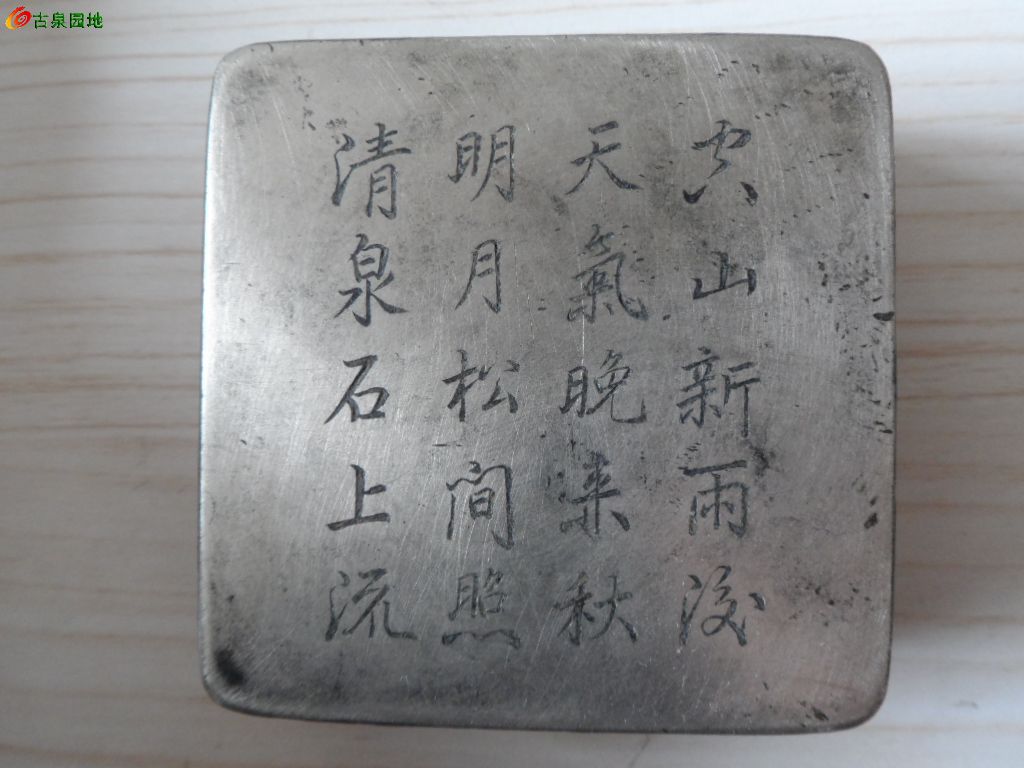 空山新雨後
天氣晚来秋
明月松間照
清泉石上流
古泉园地